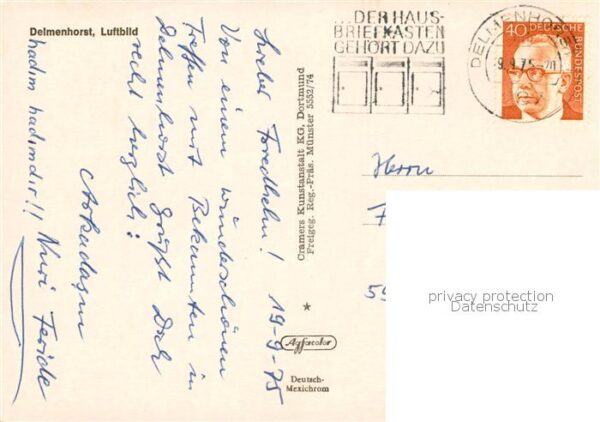 Delmenhorst, Luftbild
...DER HAUS-
BRIEFKASTEN
GEHÖRT DAZU
DELMENHORST
9.9.75-20
40 DEUTSCHE
BUNDESPOST
Lieber Friedhelm! 19-9-75
Von einem wunderschönen
Treffen mit Bekannten in
Delmenhorst grüßt Dich
recht herzlich:
Arkadaşın
Nuri Feride
hadım hadımdır!!
Cramers Kunstanstalt KG, Dortmund
Freigeg. Reg.-Präs. Münster 5552/74
Agfacolor
Deutsch-
Mexichrom
Herrn
F
59
privacy protection
Datenschutz